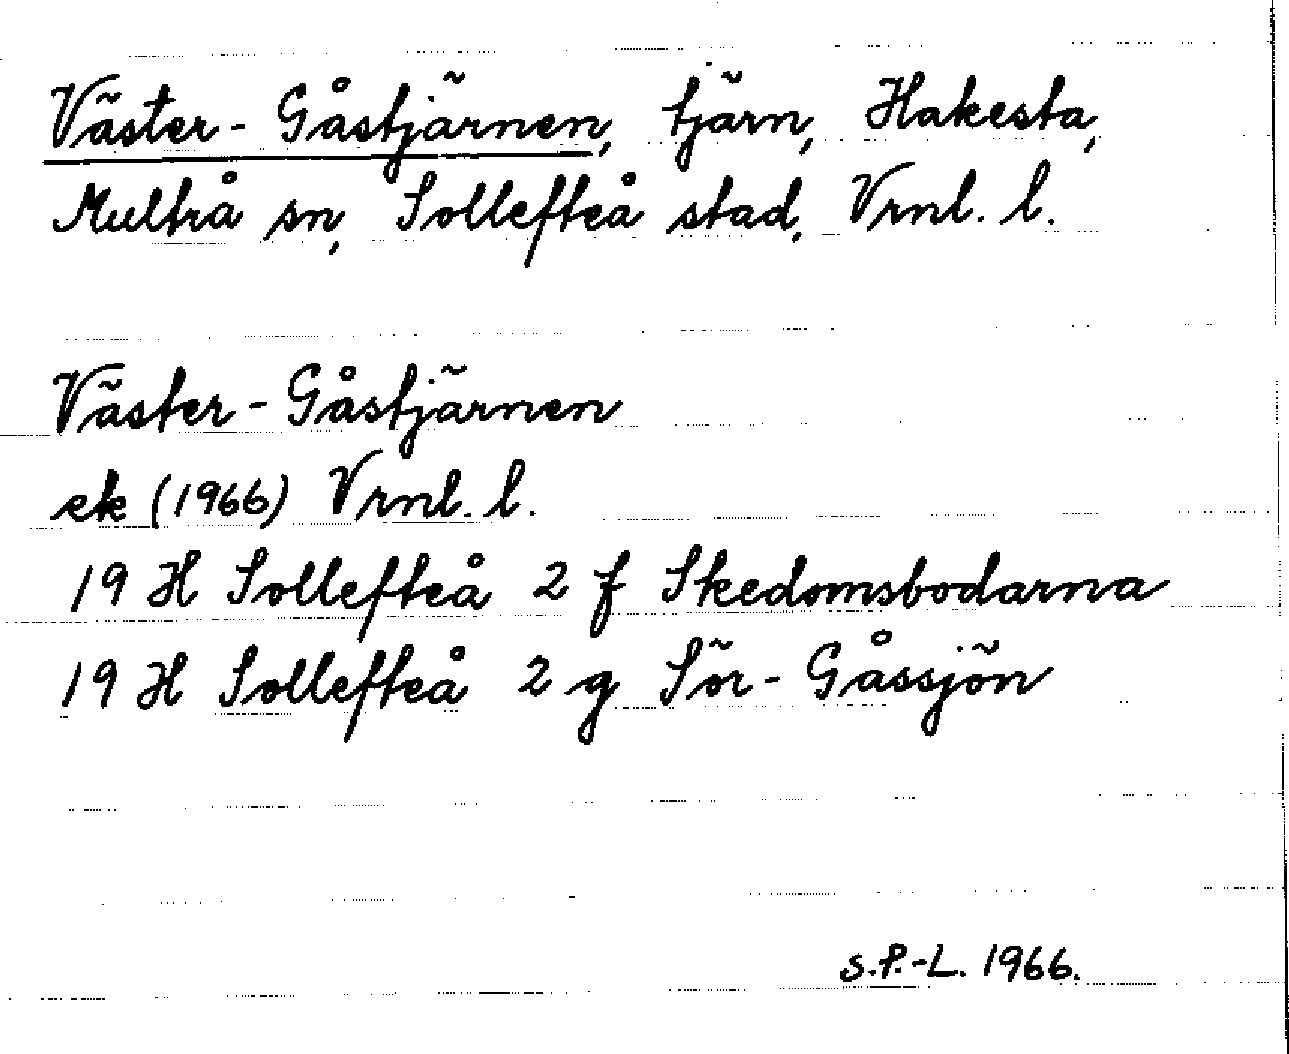 Väster-Gåstjärnen, tjärn, Hakesta,
Multrå sn, Sollefteå stad, Vrnl. l.
Väster-Gåstjärnen
ek (1966) Vrnl. l.
19 H Sollefteå 2 f Skedomsbodarna
19 H Sollefteå 2 g Sör-Gåssjön
S.P.-L. 1966.